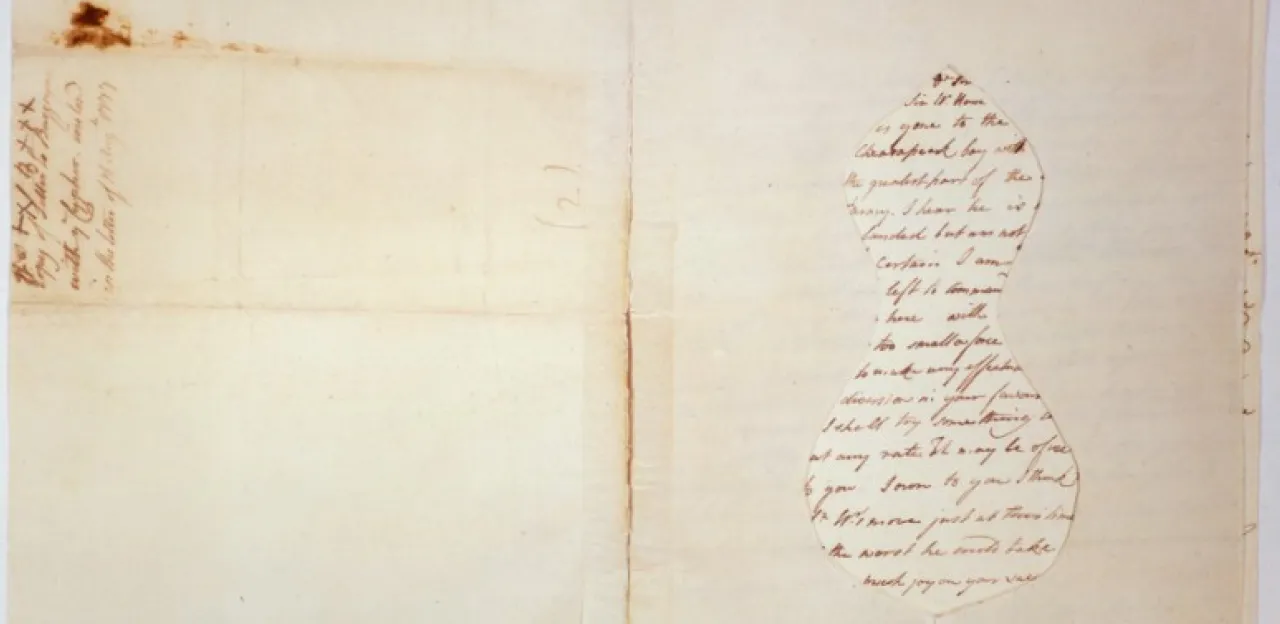 Sir W. Howe
is gone to the
Chesapeak bay with
the greatest part of the
army. I hear he is
landed but am not
certain I am
left to comman
here with
too small a force
to make any effectua
diversion in your favour
I shall try something
at any rate It may be of use
to you I own to you I think
Sr W's move just at this time
the worst he could take
much joy on your
Copy of Letter to Burgoyne
in the letter of
(2)